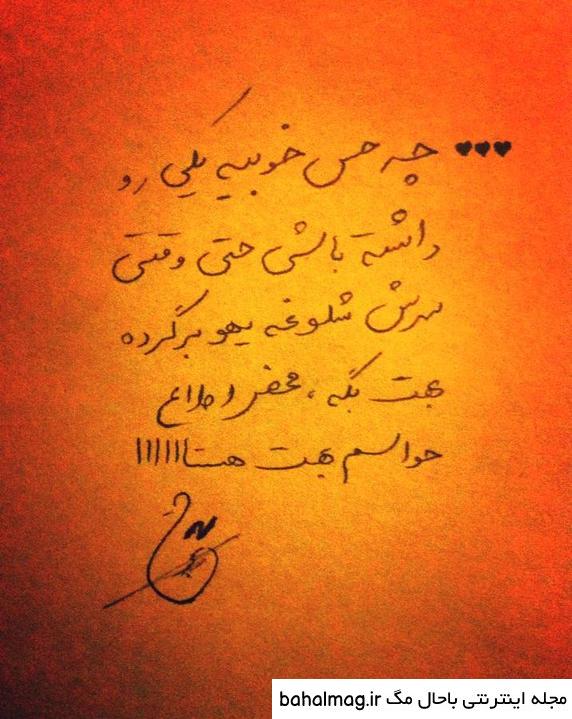 ♥♥♥ چه حس خوبیه یکی رو
داشته باشی حتی وقتی
سرش شلوغه یهو برگرده
بهت بگه ، محض اطلاع
حواسم بهت هستاااااا
مجله اینترنتی باحال مگ bahalmag.ir